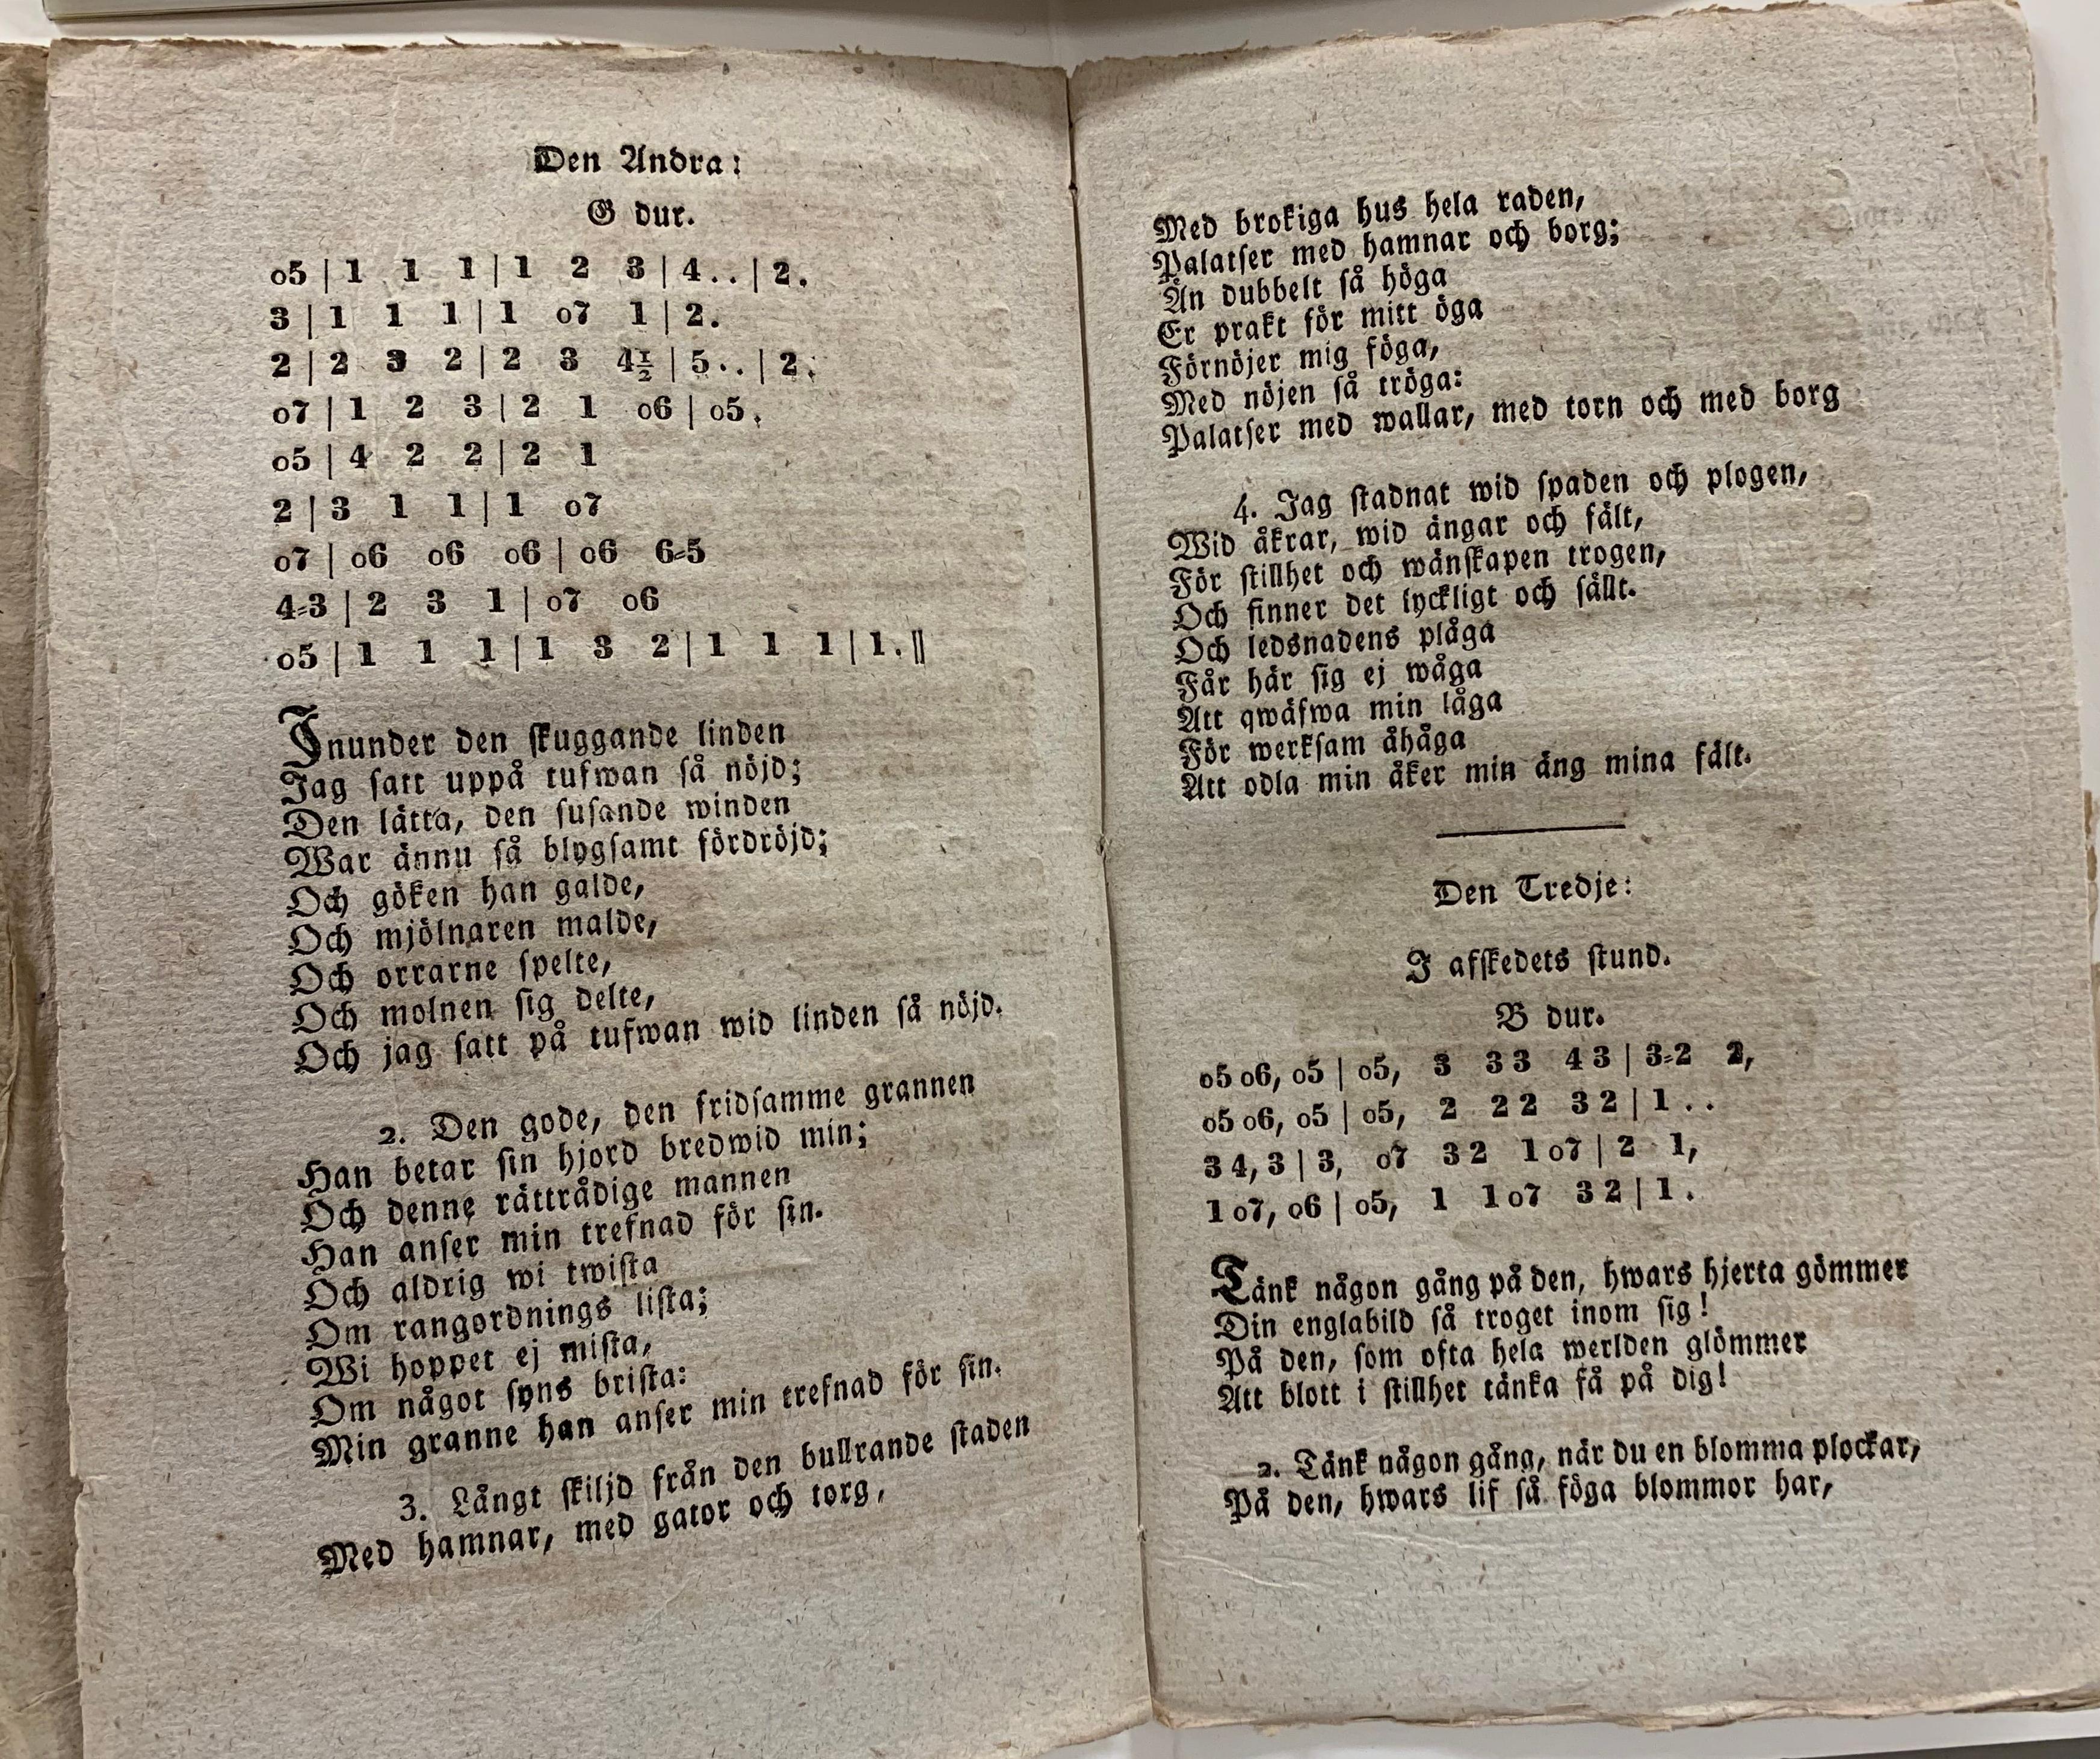 Den Andra:
G dur.
o5 | 1 1 1 | 1 2 3 | 4 . . | 2.
3 | 1 1 1 | 1 o7 1 | 2.
2 | 2 3 2 | 2 3 4½ | 5 . . | 2.
o7 | 1 2 3 | 2 1 o6 | o5.
o5 | 4 2 2 | 2 1
2 | 3 1 1 | 1 o7
o7 | o6 o6 o6 | o6 6=5
4=3 | 2 3 1 | o7 o6
o5 | 1 1 1 | 1 3 2 | 1 1 1 | 1. ||
Inunder den skuggande linden
Jag satt uppå tufwan så nöjd;
Den lätta, den susande winden
War ännu så blygsamt fördröjd;
Och göken han galde,
Och mjölnaren malde,
Och orrarne spelte,
Och molnen sig delte,
Och jag satt på tufwan wid linden så nöjd.
2. Den gode, den fridsamme grannen
Han betar sin hjord bredwid min;
Och denne rättrådige mannen
Han anser min trefnad för sin.
Och aldrig wi twista
Om rangordnings lista;
Wi hoppet ej mista,
Om något syns brista:
Min granne han anser min trefnad för sin.
3. Långt skiljd från den bullrande staden
Med hamnar, med gator och torg,
Med brokiga hus hela raden,
Palatser med hamnar och borg;
Än dubbelt så höga
Er prakt för mitt öga
Förnöjer mig föga,
Med nöjen så tröga:
Palatser med wallar, med torn och med borg
4. Jag stadnat wid spaden och plogen,
Wid åkrar, wid ängar och fält,
För stillhet och wänskapen trogen,
Och finner det lyckligt och sällt.
Och ledsnadens plåga
Får här sig ej wåga
Att qwäfwa min låga
För werksam åhåga
Att odla min åker min äng mina fält.
Den Tredje:
I afskedets stund.
B dur.
o5 o6, o5 | o5, 3 3 3 4 3 | 3=2 2,
o5 o6, o5 | o5, 2 2 2 3 2 | 1 . .
3 4, 3 | 3, o7 3 2 1 o7 | 2 1,
1 o7, o6 | o5, 1 1 o7 3 2 | 1.
Tänk någon gång på den, hwars hjerta gömmer
Din englabild så troget inom sig!
På den, som ofta hela werlden glömmer
Att blott i stillhet tänka få på dig!
2. Tänk någon gång, när du en blomma plockar,
På den, hwars lif så föga blommor har,